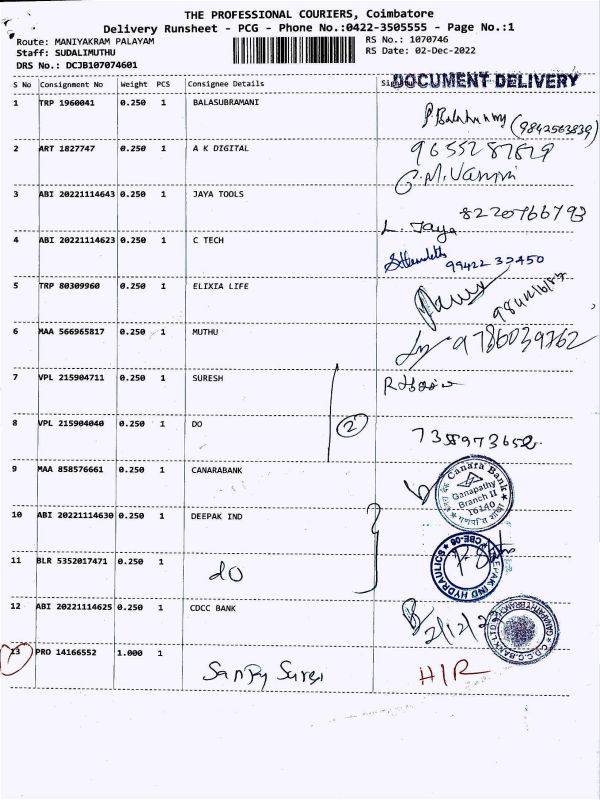 THE PROFESSIONAL COURIERS, Coimbatore
Delivery Runsheet - PCG - Phone No.:0422-3505555 - Page No.:1
Route: MANIYAKRAM PALAYAM RS No.: 1070746
Staff: SUDALIMUTHU RS Date: 02-Dec-2022
DRS No.: DCJB107074601
DOCUMENT DELIVERY
S No Consignment No Weight PCS Consignee Details
1 TRP 1960041 0.250 1 BALASUBRAMANI
(9842563839)
2 ART 1827747 0.250 1 A K DIGITAL
3 ABI 20221114643 0.250 1 JAYA TOOLS
L. Jaya 8220766793
4 ABI 20221114623 0.250 1 C TECH
99422 33450
5 TRP 80309960 0.250 1 ELIXIA LIFE
6 MAA 566965817 0.250 1 MUTHU
9786039762
7 VPL 215904711 0.250 1 SURESH
8 VPL 215904040 0.250 1 DO
2
7358973652
9 MAA 858576661 0.250 1 CANARABANK
Canara Bank
Ganapathy
Branch II
10 ABI 20221114630 0.250 1 DEEPAK IND
11 BLR 5352017471 0.250 1 do
DEEPAK IND HYDRAULICS * CBE-06 *
12 ABI 20221114625 0.250 1 CDCC BANK
2/12/2
13 PRO 14166552 1.000 1 Sanjay Suresh
H/R